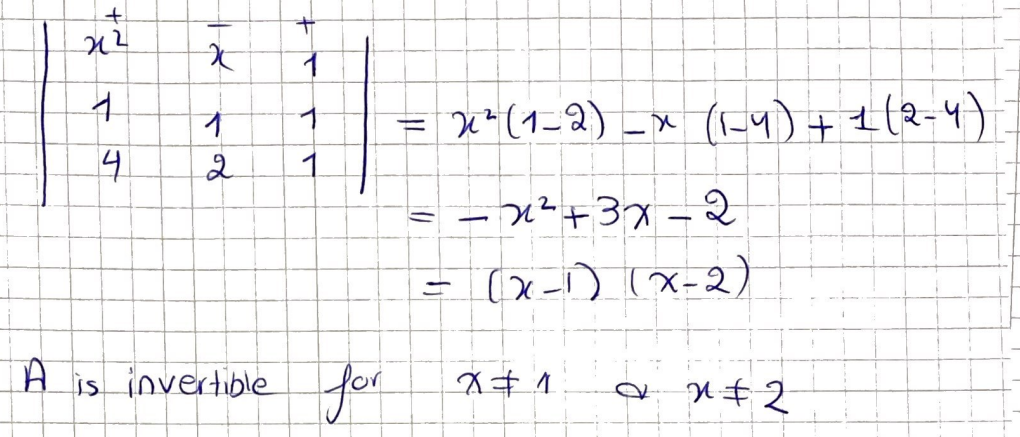 + − +
| x² x 1 |
| 1 1 1 | = x²(1−2) − x (1−4) + 1(2−4)
| 4 2 1 |
= − x² + 3x − 2
= (x−1) (x−2)
A is invertible for x ≠ 1 & x ≠ 2